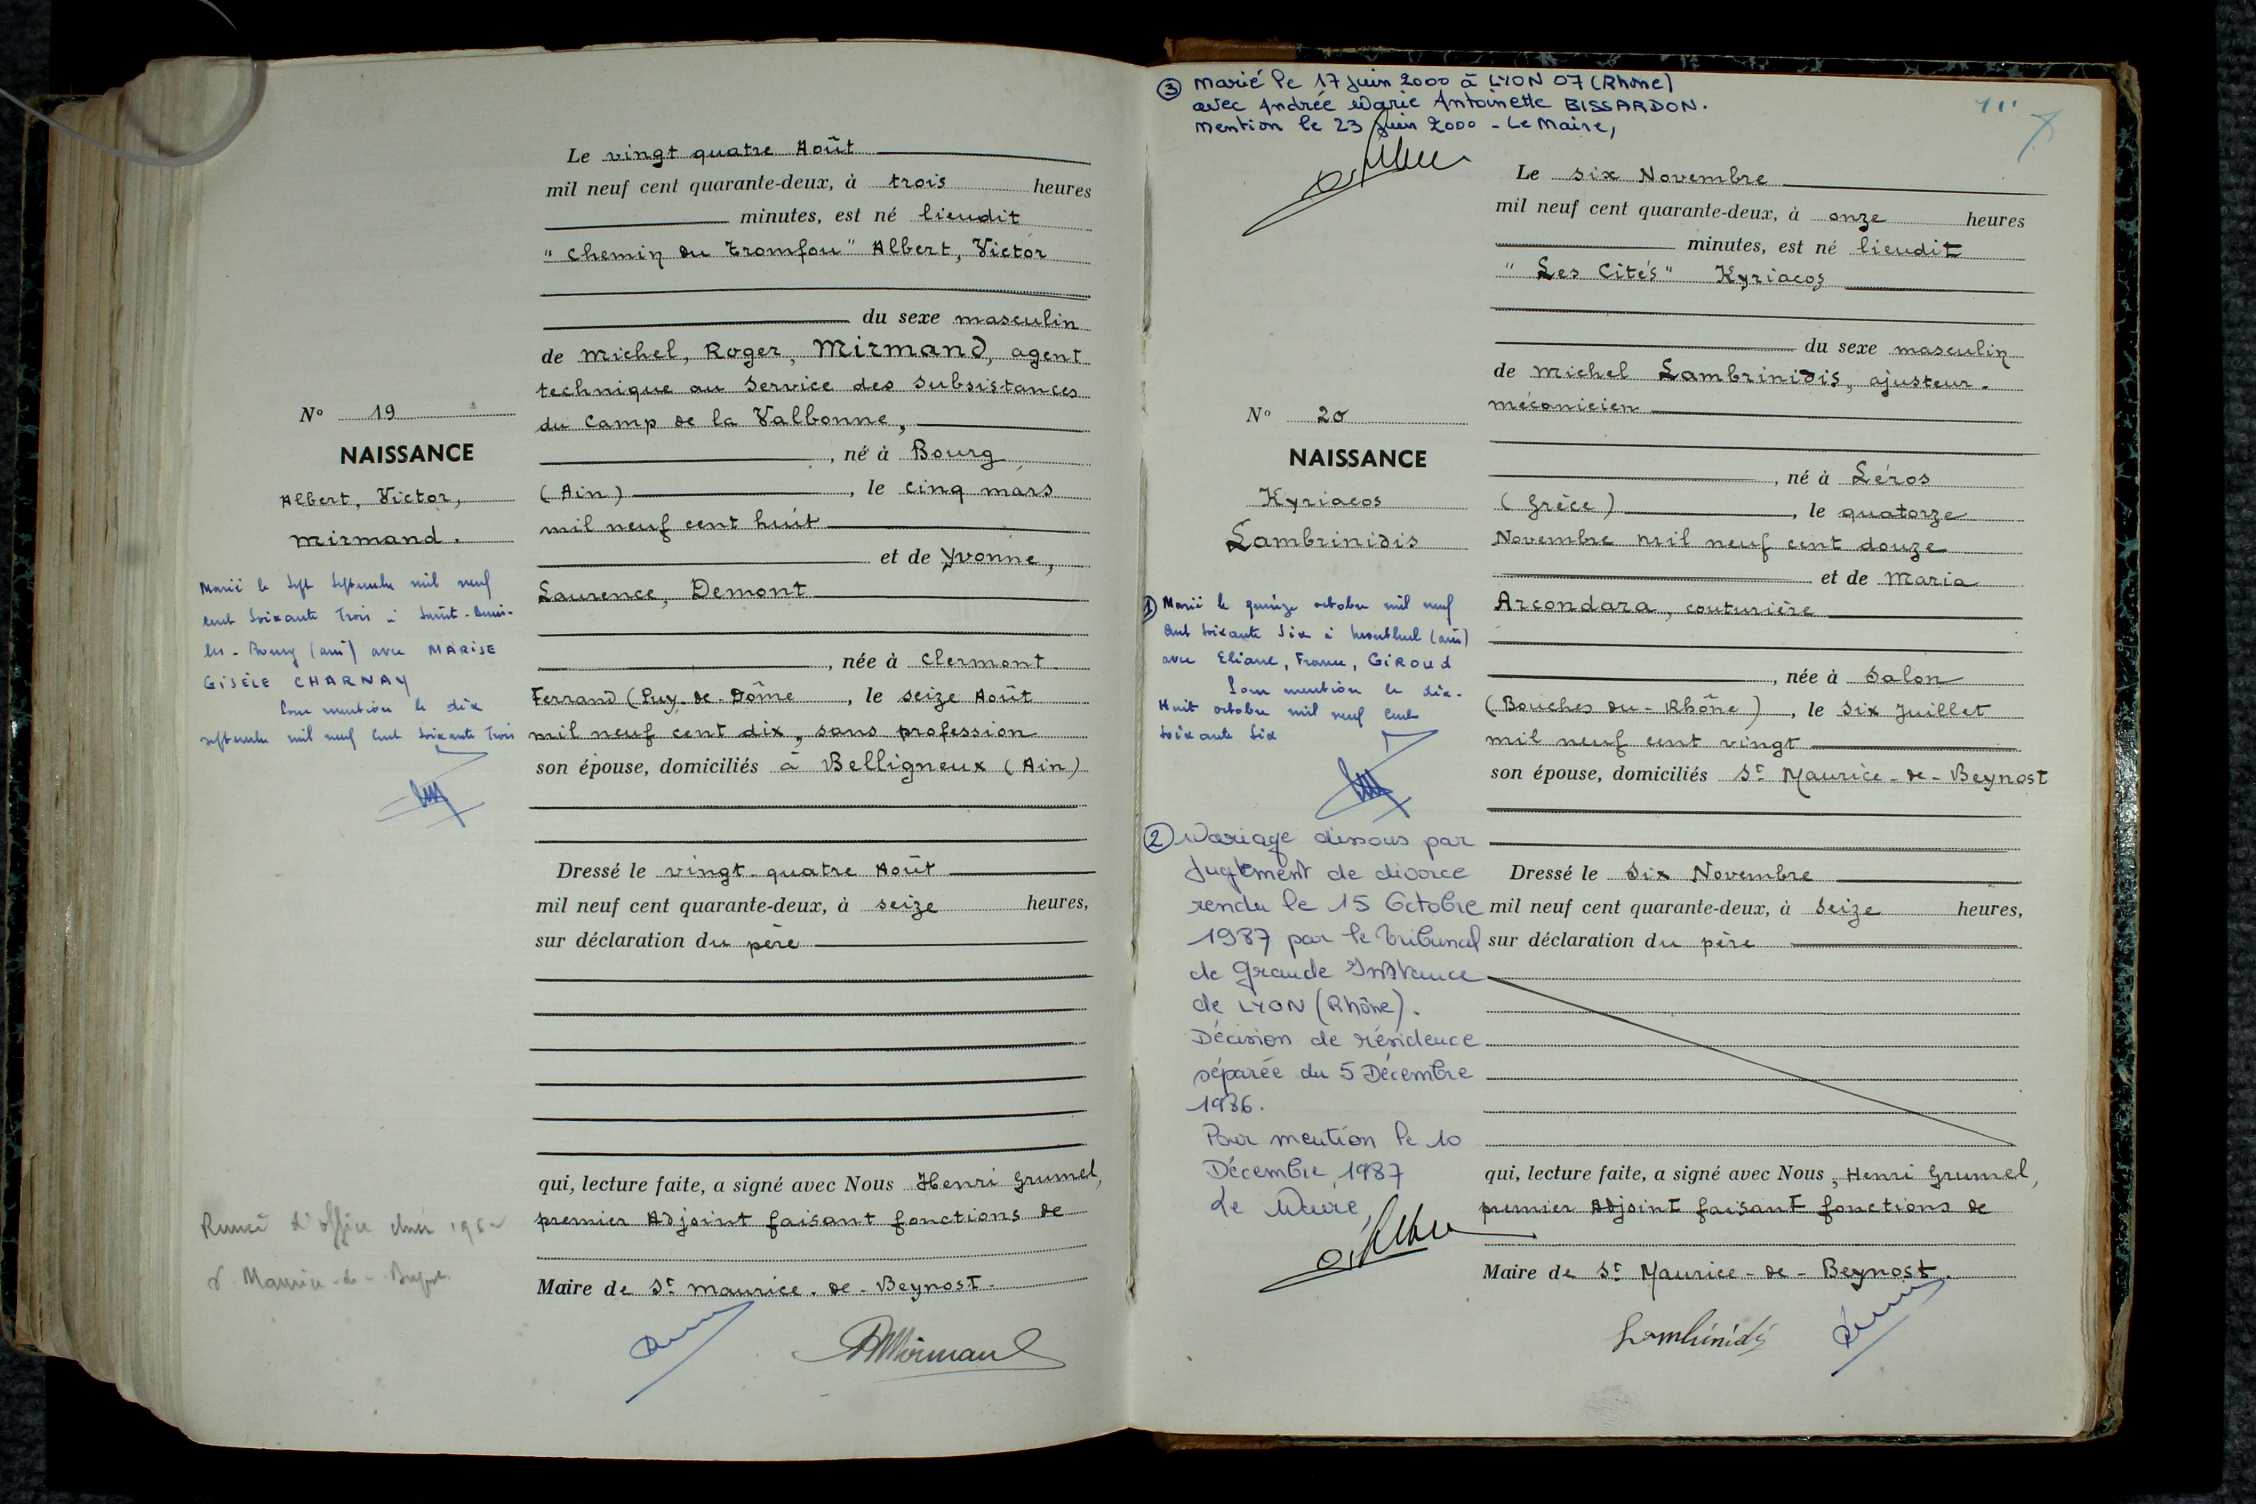 Le vingt quatre Août
mil neuf cent quarante-deux, à trois heures
minutes, est né lieudit
"Chemin du Tromfou" Albert, Victor
du sexe masculin
de Michel, Roger, Mirmand, agent
technique au Service des Subsistances
du Camp de la Valbonne,
, né à Bourg
(Ain) , le cinq mars
mil neuf cent huit
et de Yvonne,
Laurence, Demont
, née à Clermont
Ferrand (Puy-de-Dôme , le seize Août
mil neuf cent dix, sans profession
son épouse, domiciliés à Belligneux (Ain)
Dressé le vingt-quatre Août
mil neuf cent quarante-deux, à seize heures,
sur déclaration du père
qui, lecture faite, a signé avec Nous Henri Grumel,
premier Adjoint faisant fonctions de
Maire de St Maurice-de-Beynost.
Mirmand
N° 19
NAISSANCE
Albert, Victor,
Mirmand.
Marié le sept septembre mil neuf
cent soixante trois à Saint-Denis-
lès-Bourg (Ain) avec MARISE
GISÈLE CHARNAY
Pour mention le dix
septembre mil neuf cent soixante trois
d'office
St Maurice-de-Beynost
③ Marié le 17 juin 2000 à LYON 07 (Rhône)
avec Andrée Marie Antoinette BISSARDON.
Mention le 23 juin 2000 - Le Maire,
Le six Novembre
mil neuf cent quarante-deux, à onze heures
minutes, est né lieudit
"Les Cités" Kyriacos
du sexe masculin
de Michel Lambrinidis, ajusteur-
mécanicien
, né à Léros
(Grèce) , le quatorze
Novembre mil neuf cent douze
et de Maria
Arcondara, couturière
, née à Salon
(Bouches-du-Rhône) , le six Juillet
mil neuf cent vingt
son épouse, domiciliés St Maurice-de-Beynost
Dressé le six Novembre
mil neuf cent quarante-deux, à seize heures,
sur déclaration du père
qui, lecture faite, a signé avec Nous, Henri Grumel,
premier Adjoint faisant fonctions de
Maire de St Maurice-de-Beynost.
Lambrinidis
N° 20
NAISSANCE
Kyriacos
Lambrinidis
① Marié le quinze octobre mil neuf
cent soixante six à Montluel (Ain)
avec Eliane, France, GIROUD
Pour mention le dix-
Huit octobre mil neuf cent
soixante six
② Mariage dissous par
jugement de divorce
rendu le 15 Octobre
1987 par le Tribunal
de Grande Instance
de LYON (Rhône).
Décision de résidence
séparée du 5 Décembre
1986.
Pour mention le 10
Décembre 1987
Le Maire,